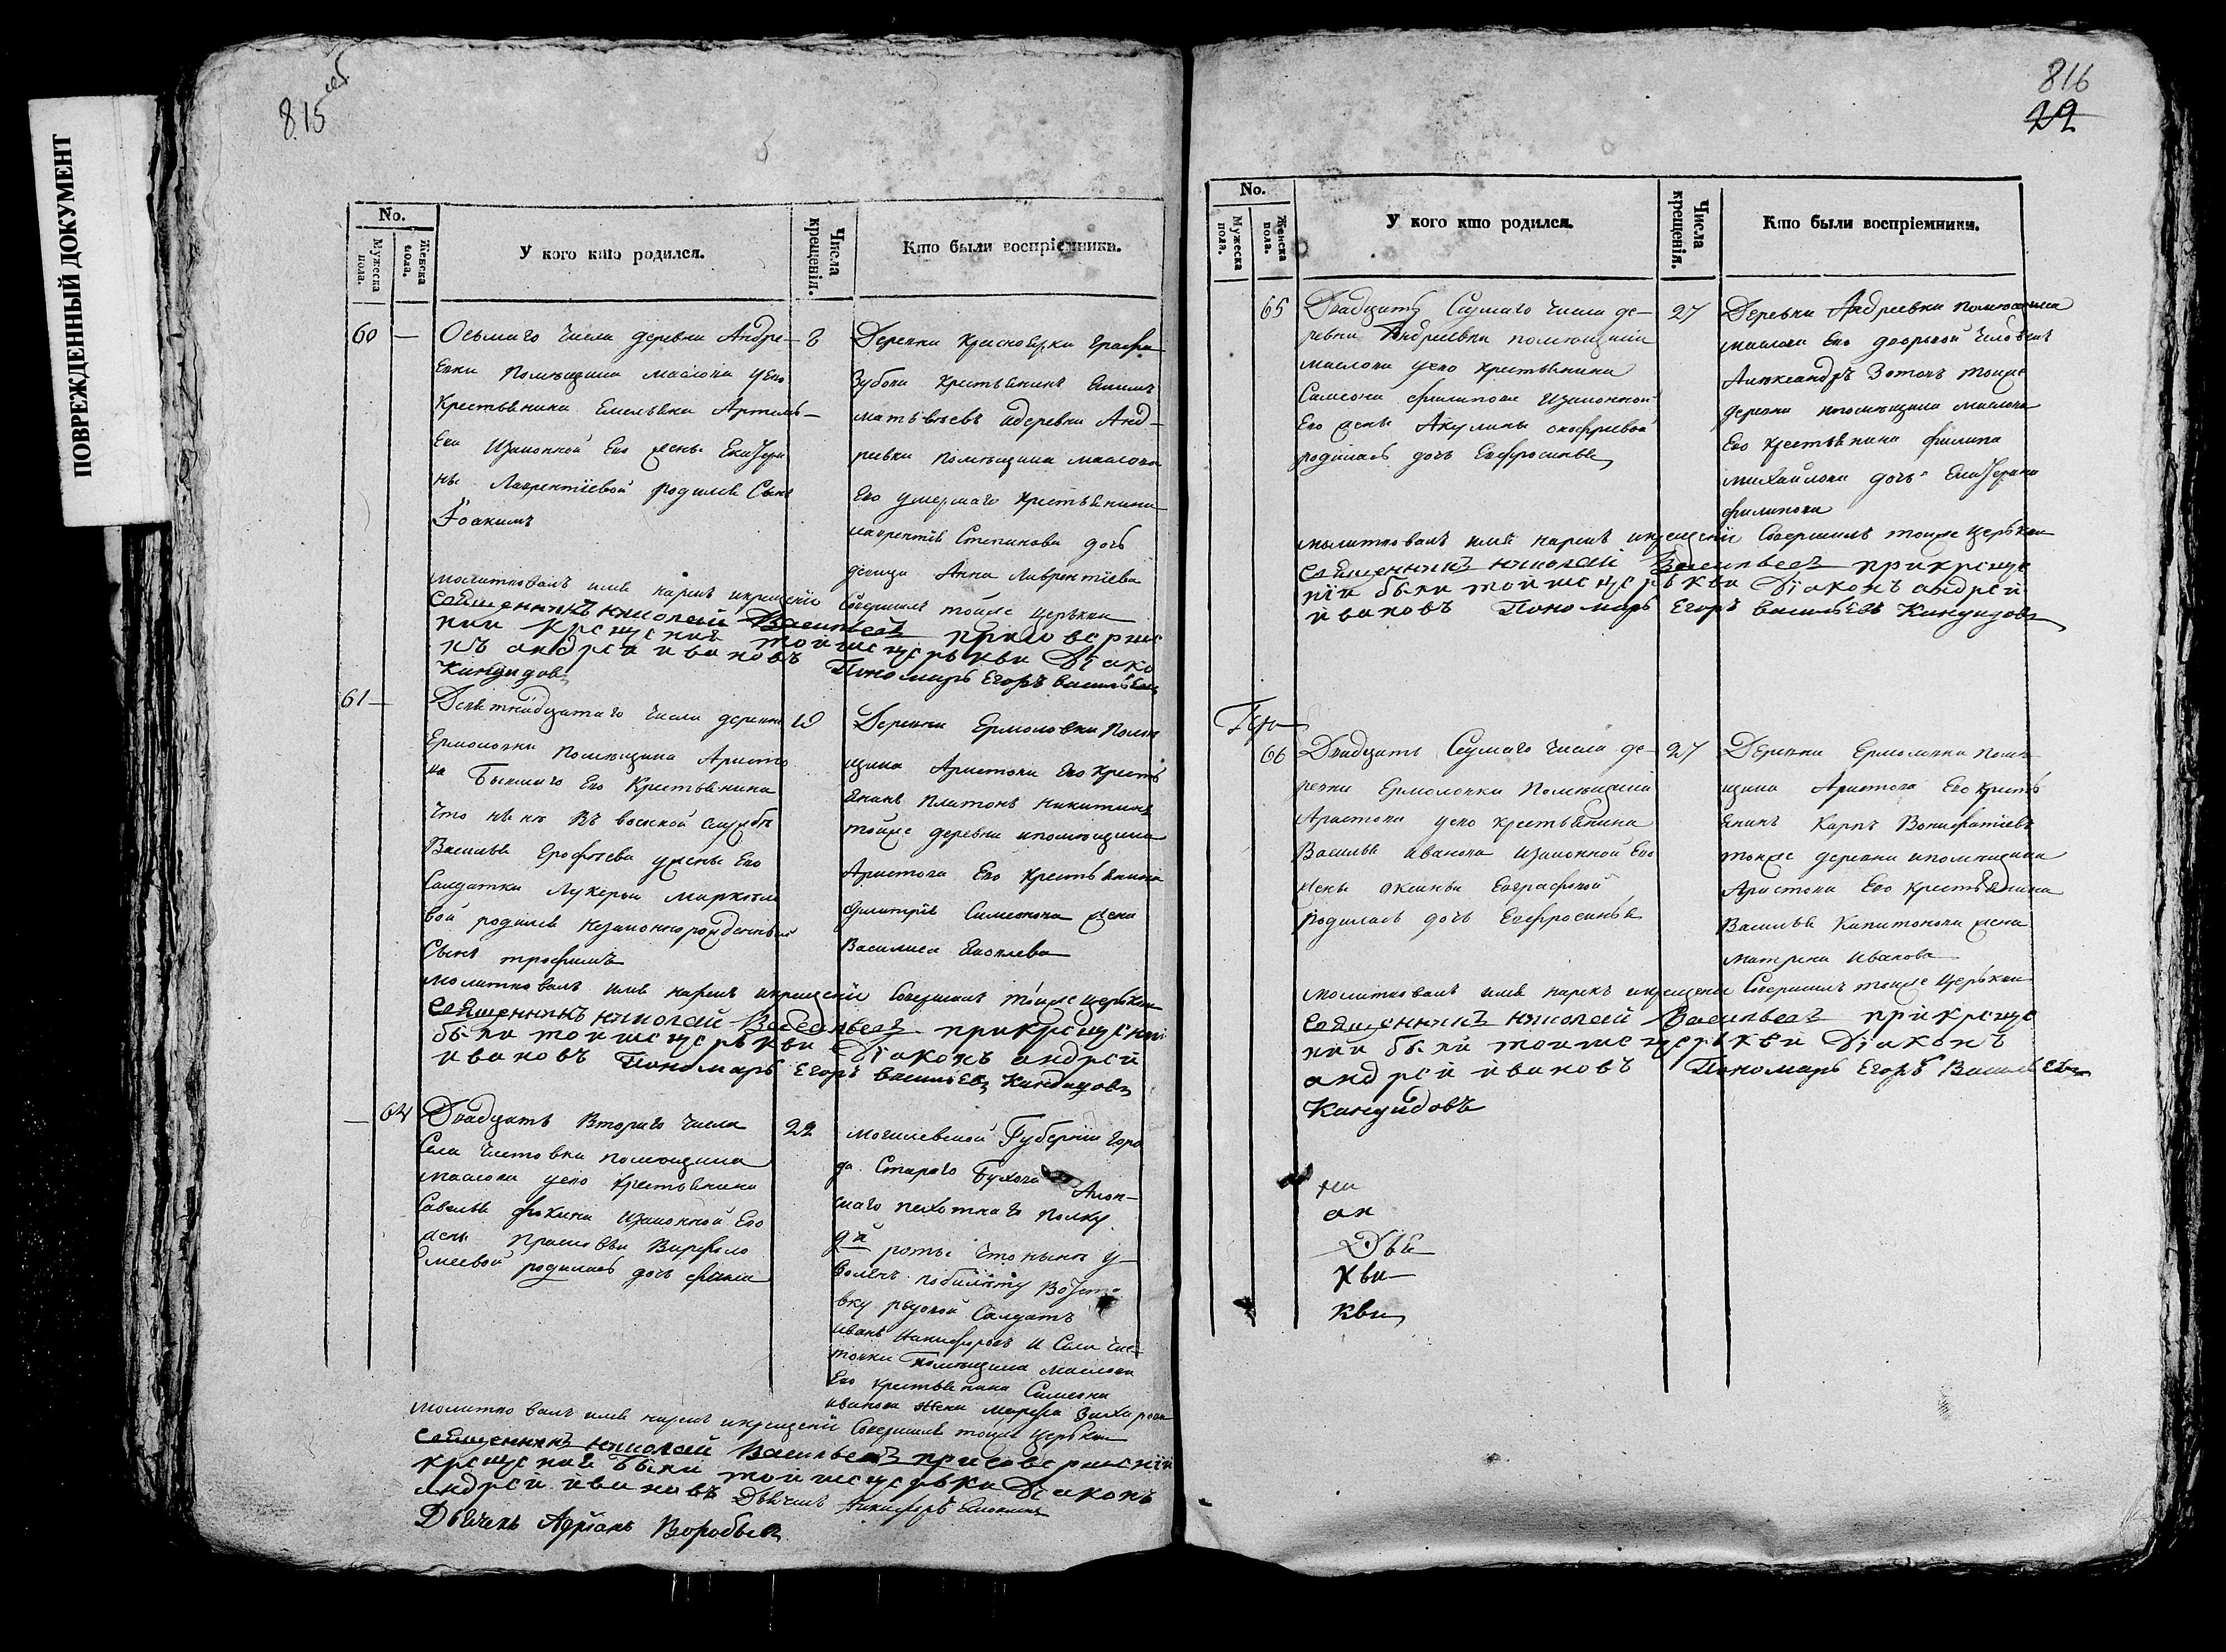 ПОВРЕЖДЕННЫЙ ДОКУМЕНТ
815
No.
Мужеска пола.
Женска пола.
У кого кто родился.
Числа крещенія.
Кто были воспріемники.
60 —
Осьмаго числа деревни Андре-
евки помѣщика маслова у его
крестьянина Емельяна Артемь-
ева изаконной Его жены Екатери
ны Лаврентіевой родился Сынъ
Іоакимъ
8
Деревни Красноярки Графа
Зубова крестьянинъ
матвѣевъ и деревни Анд-
реевки помѣщика маслова
Его умершаго крестьянина
лаврентія Степанова дочь
девица Анна Лаврентіева
молитвовалъ имя нарекъ икрещеніе Совершилъ тойже церькви
священникъ николай Васильевъ присоверше
ніи крещенія тойже церькви Діяко
нъ андрей ивановъ Пономарь Егоръ васильевъ
Кандидовъ
61 —
Девятнадцатаго числа деревни
Ермоловки помѣщика Аристо
ва Бывшаго Его Крестьянина
что нынѣ въ воєнной службѣ
Василья Ерофѣева у жены Его
Солдатки Лукерьи
вой родился незаконнорожденный
Сынъ трофимъ
19
Деревни Ермоловки Помѣ
щика Аристова Его кресть
янинъ Платонъ Никитинъ
тойже деревни ипомѣщика
Аристова Его крестьянина
Дмитрія Симеонова жена
Василиса Яковлева
молитвовалъ имя нарекъ икрещеніе Совершилъ тойже церькви
священникъ николай Васильевъ прикрещеніи
были тойже церькви Діяконъ андрей
ивановъ Пономарь Егоръ васильевъ Кандидовъ
— 64
Двадцать Втораго числа
Села Чистовки помѣщика
маслова у его крестьянина
Савелья Фокина изаконной Его
жены Прасковьи Варфоло
меевой родилась дочь
22
могилевской Губерніи горо
да Стараго Быхова
скаго пехотнаго полку
й роты что нынѣ у
воленъ побилѣту
вку рядовой Солдатъ
иванъ Никифоровъ и Села Чис
товки помѣщика маслова
Его крестьянина Симеона
иванова жена марфа Захарова
молитвовалъ имя нарекъ икрещеніе Совершилъ тойже церькви
священникъ николай Васильевъ присовершеніи
крещенія были тойже церькви Діяконъ
Андрей ивановъ Дьячекъ Никифоръ
Дьячекъ Адріанъ Воробьевъ
816
22
No.
Мужеска пола.
Женска пола.
У кого кто родился.
Числа крещенія.
Кто были воспріемники.
65
Двадцать Седмаго числа де-
ревни Андреевки помѣщика
маслова у его крестьянина
Самсона филипова изаконной
Его жены Акулины онофріевой
родилась дочь Евфросинья
27
Деревни Андреевки помѣщика
маслова Его дворовой человѣкъ
Александръ Зотовъ тойже
деревни ипомѣщика маслова
Его крестьянина филипа
михайлова дочь Екатерина
филипова
молитвовалъ имя нарекъ икрещеніе Совершилъ тойже церькви
священникъ николай Васильевъ прикреще
ніи были тойже церькви Діяконъ андрей
ивановъ Пономарь Егоръ васильевъ Кандидовъ
66
Двадцать Седмаго числа де-
ревни Ермоловки Помѣщика
Аристова у его крестьянина
Василья иванова изаконной Его
жены оксиньи Евграфовой
родилась дочь Евфросинья
27
Деревни Ермоловки помѣ
щика Аристова Его кресть
янинъ Карпъ Вонифатіевъ
тойже деревни ипомѣщика
Аристова Его крестьянина
Василья Капитонова жена
матрена Иванова
молитвовалъ имя нарекъ икрещеніе Совершилъ тойже церькви
священникъ николай Васильевъ прикреще
ніи были тойже церькви Діяконъ
андрей ивановъ Пономарь Егоръ Васильевъ
Кандидовъ
ни
ан
Дья
кви
кви